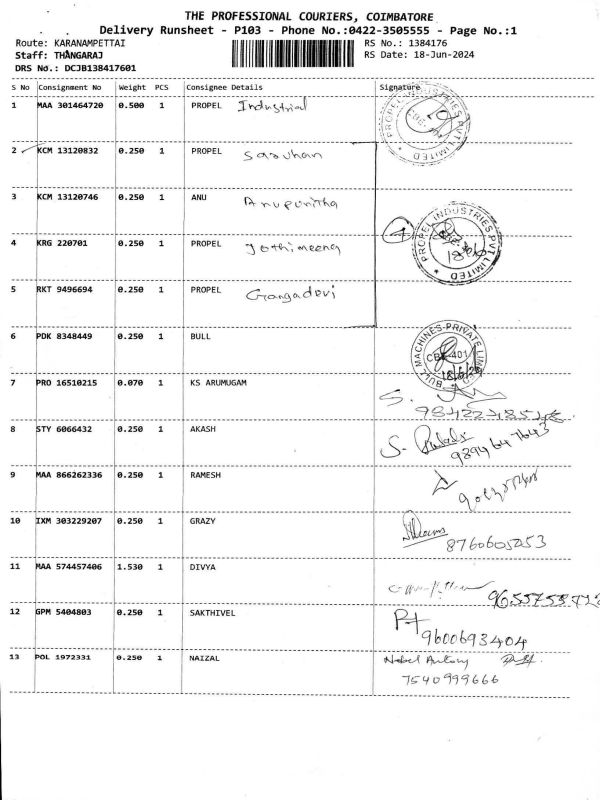 THE PROFESSIONAL COURIERS, COIMBATORE
Delivery Runsheet - P103 - Phone No.:0422-3505555 - Page No.:1
Route: KARANAMPETTAI RS No.: 1384176
Staff: THANGARAJ RS Date: 18-Jun-2024
DRS No.: DCJB138417601
S No Consignment No Weight PCS Consignee Details Signature
1 MAA 301464720 0.500 1 PROPEL Industrial
PROPEL INDUSTRIES PVT LIMITED
2 KCM 13120832 0.250 1 PROPEL Saruhan
3 KCM 13120746 0.250 1 ANU Anupunitha
4 KRG 220701 0.250 1 PROPEL Jothimeena
PROPEL INDUSTRIES PVT LIMITED
5 RKT 9496694 0.250 1 PROPEL Gangadevi
6 PDK 8348449 0.250 1 BULL
BULL MACHINES PRIVATE LIMITED
CBE-401
7 PRO 16510215 0.070 1 KS ARUMUGAM
8 STY 6066432 0.250 1 AKASH
9894647643
9 MAA 866262336 0.250 1 RAMESH
10 IXM 303229207 0.250 1 GRAZY
8760605053
11 MAA 574457406 1.530 1 DIVYA
12 GPM 5404803 0.250 1 SAKTHIVEL
9600693404
13 POL 1972331 0.250 1 NAIZAL Nobel Antony
7540999666